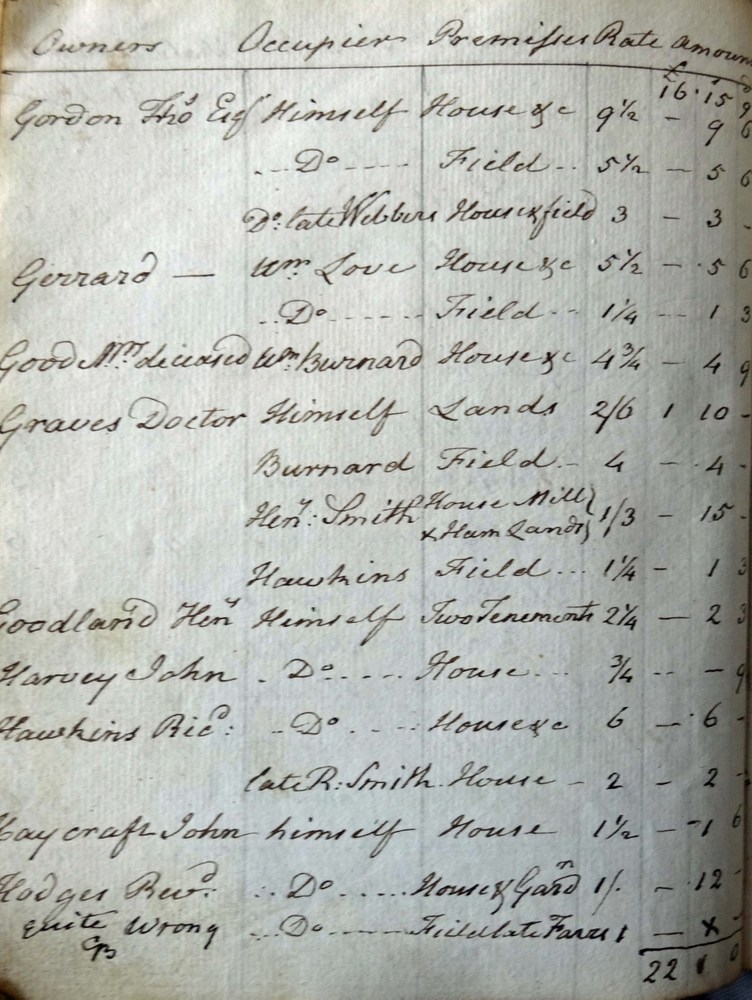 Owners Occupiers Premisses Rate Amoun
£
16 · 15 9
Gordon Thos Esqr Himself House &c 9½ — 9 6
.. Do ---- Field .. 5½ — 5 6
Do: late Webbers House & field 3 — 3 -
Gerrard — Wm Love House &c 5½ — 5 6
.. Do ------ Field .. 1¼ -- 1 3
Good Mrs deceased Wm Burnard House &c 4¾ — 4 9
Graves Doctor Himself Lands 2/6 1 10 -
Burnard Field .. 4 — 4 -
Heny: Smith House Mill
& Ham Lands } 1/3 — 15 -
Hawkins Field ... 1¼ — 1 3
Goodland Heny Himself Two Tenements 2¼ — 2 3
Harvey John . Do .... House ... ¾ -- — 9
Hawkins Ricd: .. Do .... House &c 6 — 6 -
late R: Smith House — 2 — 2 -
Haycraft John himself House 1½ — 1 6
Hodges Revd: .. Do ..... House & Gardn 1/. — 12 -
quite Wrong ... Do ---- Field late Farrs 1 — x -
22 1 0